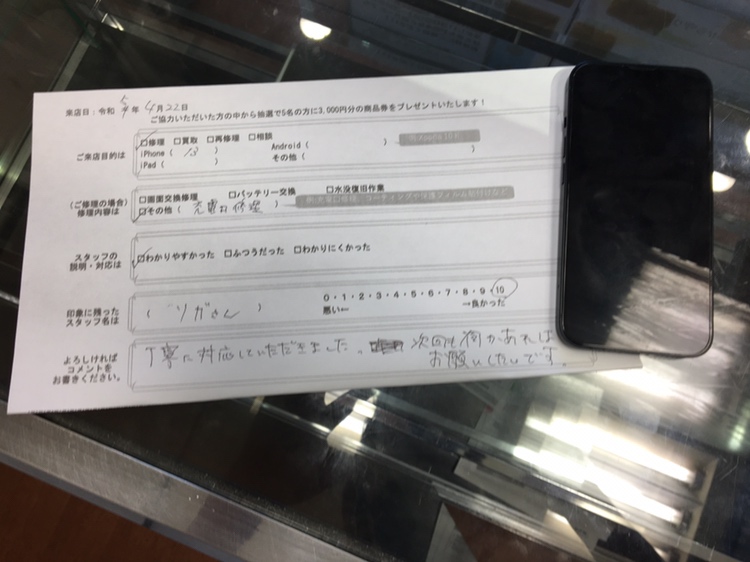 来店日：令和 年 4月22日
ご協力いただいた方の中から抽選で5名の方に3,000円分の商品券をプレゼントいたします！
ご来店目的は
□修理 □買取 □再修理 □相談
iPhone（ 13 ） Android（ ）
iPad（ ） その他（ ）
（ご修理の場合）
修理内容は
□画面交換修理 □バッテリー交換 □水没復旧作業
□その他（ 充電口修理 ）
スタッフの
説明・対応は
□わかりやすかった □ふつうだった □わかりにくかった
印象に残った
スタッフ名は
（ ツガさん ）
0・1・2・3・4・5・6・7・8・9・10
悪い← →良かった
よろしければ
コメントを
お書きください。
丁寧に対応していただきました。 次回も何かあれば
お願いしたいです。